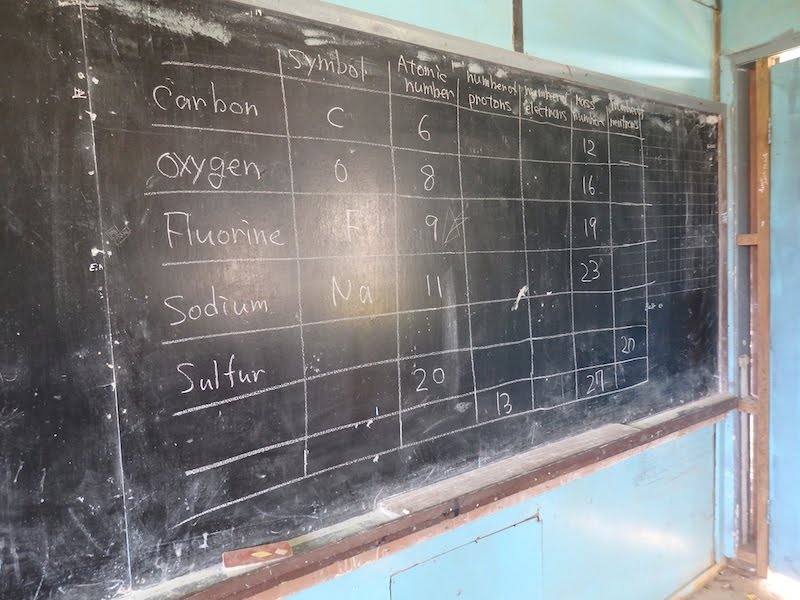 Symbol
Atomic
number
number of
protons
number of
electrons
Mass
number
number
neutrons
Carbon C 6 12
Oxygen O 8 16
Fluorine F 9 19
Sodium Na 11 23
Sulfur
20 20
13 27